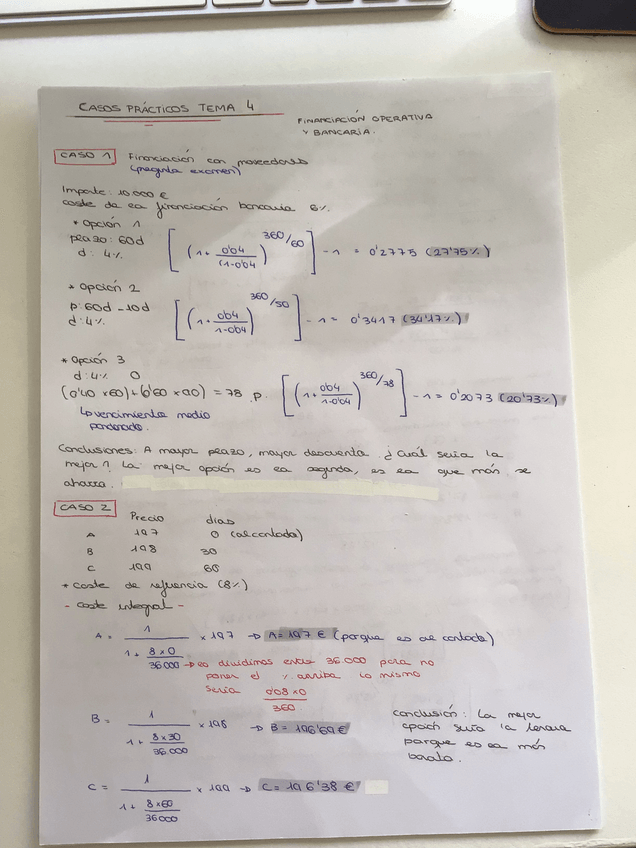 CASOS PRÁCTICOS TEMA 4
FINANCIACIÓN OPERATIVA
Y BANCARIA.
CASO 1 Financiación con proveedores
(pregunta examen)
Importe: 10.000 €
coste de la financiación bancaria 6%.
* Opción 1
plazo: 60d
d: 4%
[(1+ 0'04/(1-0'04))^360/60] - 1 = 0'2775 (27'75%)
* Opción 2
p: 60d - 10d
d: 4%
[(1+ 0'04/1-0'04)^360/50] - 1 = 0'3417 (34'17%)
* Opción 3
d: 4% 0
(0'40 x60)+(0'60 x90) = 78 p. [(1+ 0'04/1-0'04)^360/78] - 1 = 0'2073 (20'73%)
↳ vencimiento medio
ponderado.
Conclusiones: A mayor plazo, mayor descuento. ¿Cuál sería la
mejor? La mejor opción es la segunda, es la que más se
ahorra.
CASO 2
Precio días
A 197 0 (al contado)
B 198 30
C 199 60
* coste de referencia (8%)
- coste integral -
A = 1/(1 + 8x0/36.000) x 197 → A = 197 € (porque es al contado)
→ lo dividimos entre 36.000 para no
poner el % arriba lo mismo
sería 0'08 x0/360
B = 1/(1 + 8x30/36.000) x 198 → B = 196'69 €
conclusión: La mejor
opción sería la tercera
porque es la más
barata.
C = 1/(1 + 8x60/36000) x 199 → C = 196'38 €